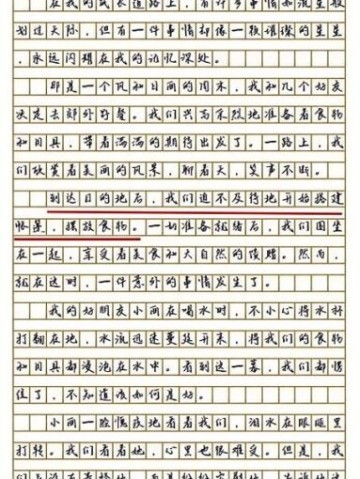 在我的成长道路上，有许多事情如流星般
划过天际，但有一件事情却像一颗璀璨的星星
，永远闪耀在我的记忆深处。
那是一个风和日丽的周末，我和几个好友
决定去郊外野餐。我们兴高采烈地准备着食物
和用具，带着满满的期待出发了。一路上，我
们欣赏着美丽的风景，聊着天，笑声不断。
到达目的地后，我们迫不及待地开始搭建
帐篷，摆放食物。一切准备就绪后，我们围坐
在一起，享受着美食和大自然的馈赠。然而，
就在这时，一件意外的事情发生了。
我的好朋友小丽在喝水时，不小心将水杯
打翻在地，水流迅速蔓延开来，将我们的食物
和用具都浸泡在水中。看到这一幕，我们都愣
住了，不知道该如何是好。
小丽一脸愧疚地看着我们，泪水在眼眶里
打转。我们看着她，心里也很难受。但是，我